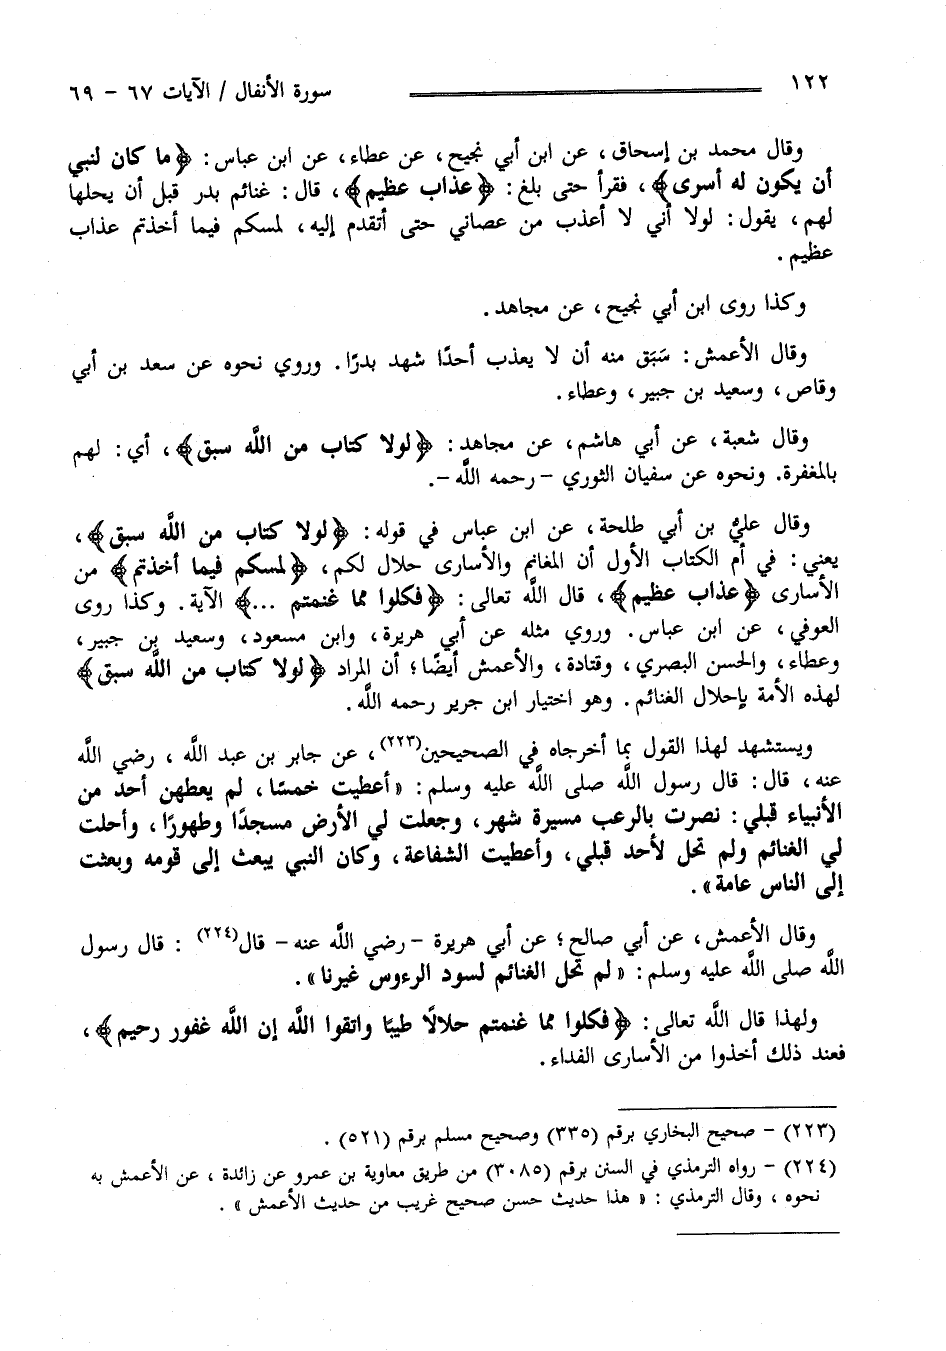 ١٢٢ سورة الأنفال / الآيات ٦٧ - ٦٩
وقال محمد بن إسحاق، عن ابن أبي نجيح، عن عطاء، عن ابن عباس: ﴿ما كان لنبي
أن يكون له أسرى﴾، فقرأ حتى بلغ: ﴿عذاب عظيم﴾، قال: غنائم بدر قبل أن يحلها
لهم، يقول: لولا أني لا أعذب من عصاني حتى أتقدم إليه، لمسكم فيما أخذتم عذاب
عظيم.
وكذا روى ابن أبي نجيح، عن مجاهد.
وقال الأعمش: سَبَق منه أن لا يعذب أحدًا شهد بدرًا. وروي نحوه عن سعد بن أبي
وقاص، وسعيد بن جبير، وعطاء.
وقال شعبة، عن أبي هاشم، عن مجاهد: ﴿لولا كتاب من اللَّه سبق﴾، أي: لهم
بالمغفرة. ونحوه عن سفيان الثوري - رحمه اللَّه -.
وقال عليُّ بن أبي طلحة، عن ابن عباس في قوله: ﴿لولا كتاب من اللَّه سبق﴾،
يعني: في أم الكتاب الأول أن المغانم والأسارى حلال لكم، ﴿لمسكم فيما أخذتم﴾ من
الأسارى ﴿عذاب عظيم﴾، قال اللَّه تعالى: ﴿فكلوا مما غنمتم ...﴾ الآية. وكذا روى
العوفي، عن ابن عباس. وروي مثله عن أبي هريرة، وابن مسعود، وسعيد بن جبير،
وعطاء، والحسن البصري، وقتادة، والأعمش أيضًا؛ أن المراد ﴿لولا كتاب من اللَّه سبق﴾
لهذه الأمة بإحلال الغنائم. وهو اختيار ابن جرير رحمه اللَّه.
ويستشهد لهذا القول بما أخرجاه في الصحيحين(٢٢٣)، عن جابر بن عبد اللَّه ، رضي اللَّه
عنه، قال: قال رسول اللَّه صلى اللَّه عليه وسلم: «أعطيت خمسًا، لم يعطهن أحد من
الأنبياء قبلي: نصرت بالرعب مسيرة شهر، وجعلت لي الأرض مسجدًا وطهورًا، وأحلت
لي الغنائم ولم تحل لأحد قبلي، وأعطيت الشفاعة، وكان النبي يبعث إلى قومه وبعثت
إلى الناس عامة».
وقال الأعمش، عن أبي صالح؛ عن أبي هريرة - رضي اللَّه عنه - قال(٢٢٤) : قال رسول
اللَّه صلى اللَّه عليه وسلم: «لم تحل الغنائم لسود الرءوس غيرنا».
ولهذا قال اللَّه تعالى: ﴿فكلوا مما غنمتم حلالًا طيبًا واتقوا اللَّه إن اللَّه غفور رحيم﴾،
فعند ذلك أخذوا من الأسارى الفداء.
(٢٢٣) - صحيح البخاري برقم (٣٣٥) وصحيح مسلم برقم (٥٢١) .
(٢٢٤) - رواه الترمذي في السنن برقم (٣٠٨٥) من طريق معاوية بن عمرو عن زائدة ، عن الأعمش به
نحوه ، وقال الترمذي : « هذا حديث حسن صحيح غريب من حديث الأعمش » .